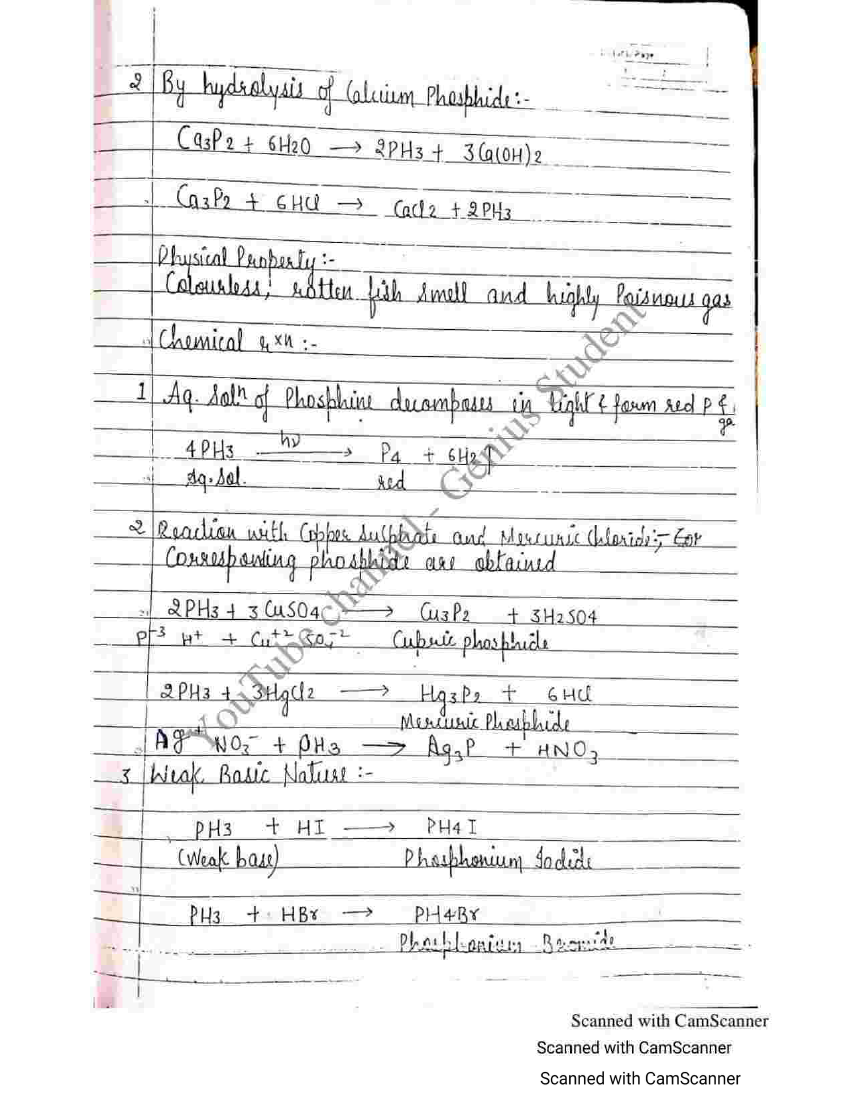 2 By hydrolysis of Calcium Phosphide:-
Ca3P2 + 6H2O → 2PH3 + 3Ca(OH)2
Ca3P2 + 6HCl → CaCl2 + 2PH3
Physical Property:-
Colourless, rotten fish smell and highly Poisnous gas
Chemical rxn :-
1 Aq. Solⁿ of Phosphine decomposes in light & form red P &
4PH3 hν → P4 + 6H2↑
Aq.Sol. red
2 Reaction with Copper Sulphate and Mercuric Chloride:-
Corresponing phosphide are obtained
2PH3 + 3CuSO4 → Cu3P2 + 3H2SO4
P⁻³ H⁺ + Cu⁺² SO₄⁻² Cupric phosphide
2PH3 + 3HgCl2 → Hg3P2 + 6HCl
Mercuric Phosphide
Ag⁺ NO₃⁻ + PH3 → Ag₃P + HNO₃
3 Weak Basic Nature :-
PH3 + HI → PH4I
(Weak base) Phosphonium Iodide
PH3 + HBr → PH4Br
Phosphonium Bromide
YouTube channel - Genius Student
Scanned with CamScanner
Scanned with CamScanner
Scanned with CamScanner